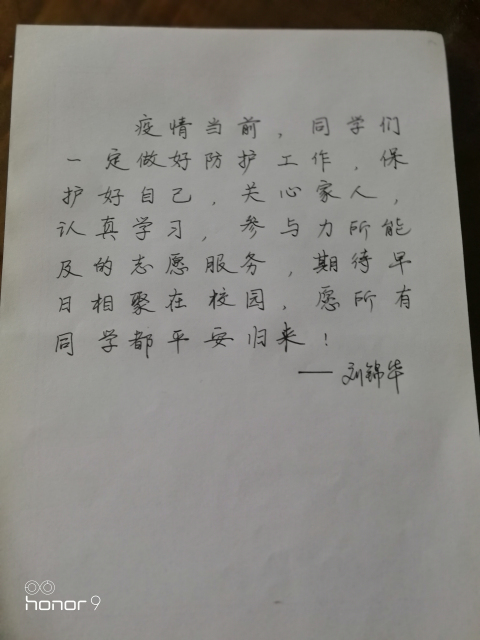 疫情当前，同学们
一定做好防护工作，保
护好自己，关心家人，
认真学习，参与力所能
及的志愿服务，期待早
日相聚在校园，愿所有
同学都平安归来！
——刘锦华
honor 9